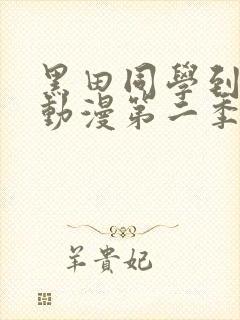 黑田同學到
動漫第二季
羊貴妃